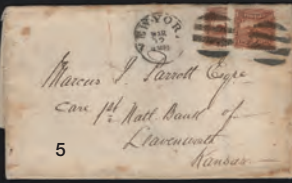 NEW-YORK
MAR
Marcus J. Parrott Esqre
Care 1st Natl. Bank of
Leavenworth
Kansas
5